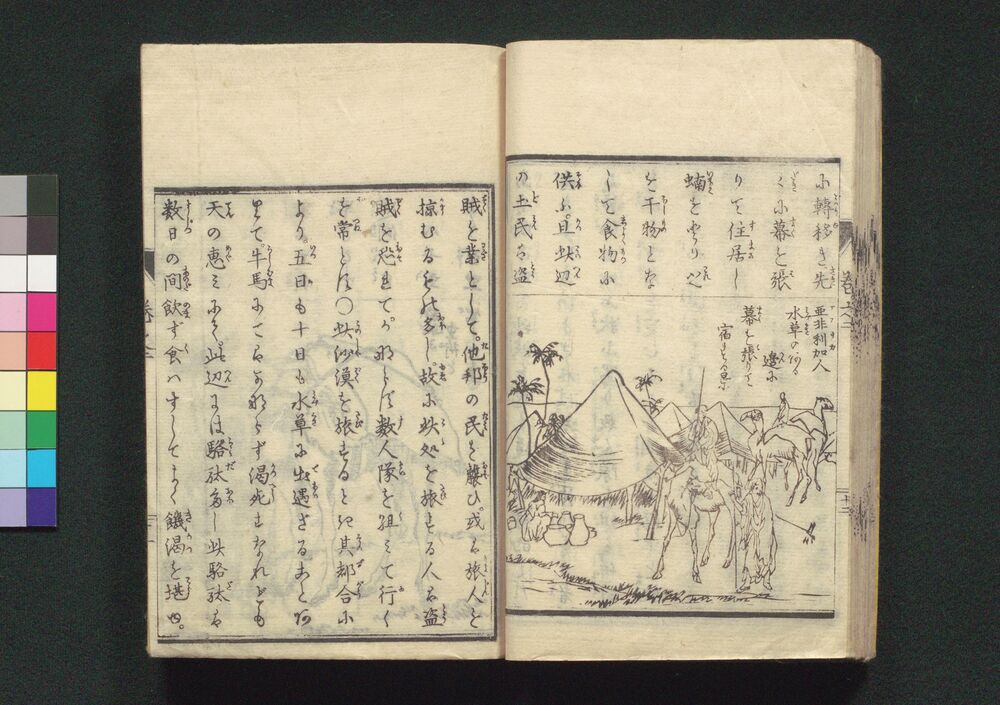 に轉移き先
〱に幕を張
りて住居し
蝻をとりこれ
を干物とな
して食物に
供ふ且此辺
の土民は盗
亜非利加人
水草の
邊に
幕を張りて
宿する
賊を業として。他邦の民を襲ひ或は旅人を
掠むるもの多し。故に此処を旅する人は盗
賊を恐れて。数人隊を組て行く
を常とす〇此沙漠を旅するとき其都合に
より。五日も十日も水草に出遇ざること
牛馬にては渇死すなれども
天の恵みにて。此辺には駱駄多し此駱駄は
数日の間飲ず食ハずしてよく饑渇を堪ゆ。